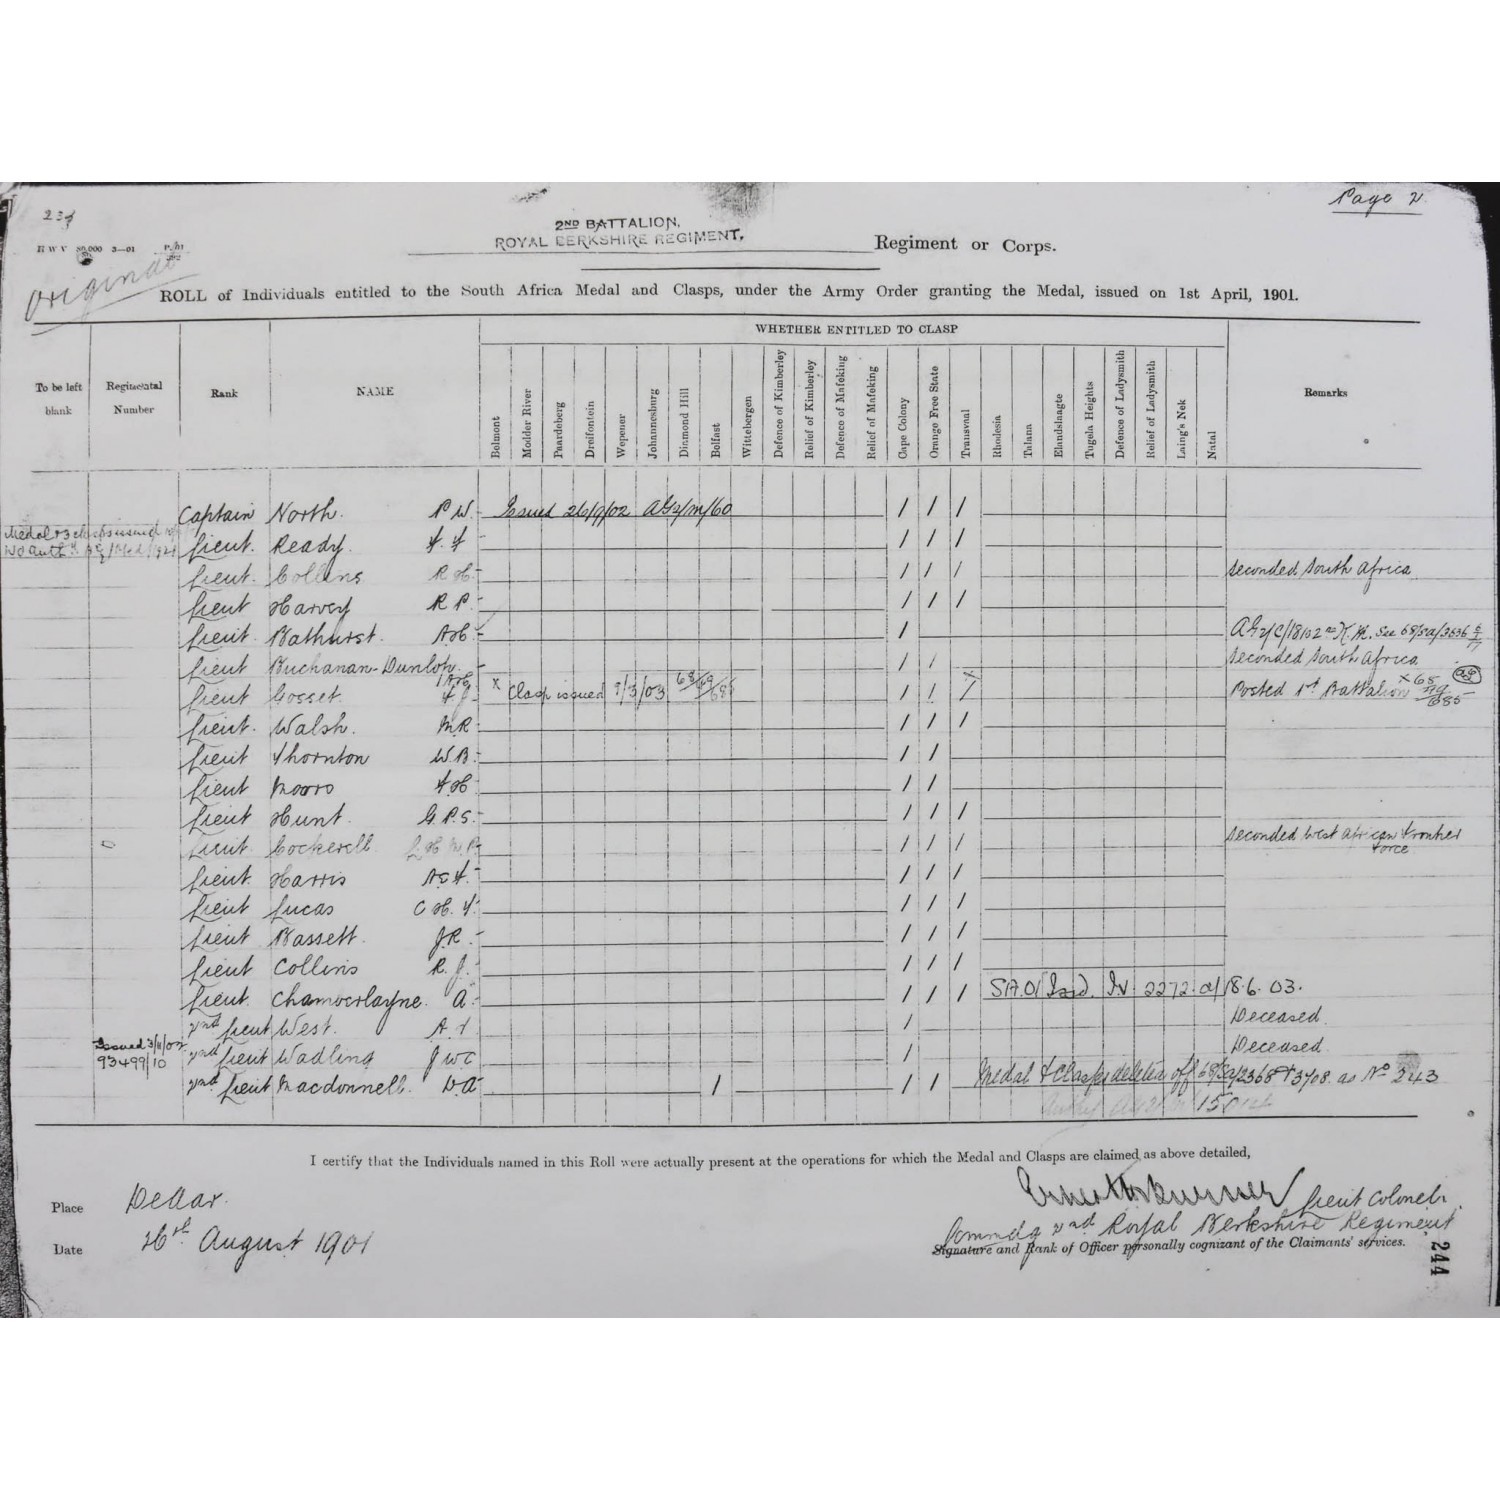 Page 2
234
2ND BATTALION,
ROYAL BERKSHIRE REGIMENT. Regiment or Corps.
H W V 3—01
Original
ROLL of Individuals entitled to the South Africa Medal and Clasps, under the Army Order granting the Medal, issued on 1st April, 1901.
WHETHER ENTITLED TO CLASP
To be left blank
Regimental Number
Rank
NAME
Belmont
Modder River
Paardeberg
Dreifontein
Wepener
Johannesburg
Diamond Hill
Belfast
Wittebergen
Defence of Kimberley
Relief of Kimberley
Defence of Mafeking
Relief of Mafeking
Cape Colony
Orange Free State
Transvaal
Rhodesia
Talana
Elandslaagte
Tugela Heights
Defence of Ladysmith
Relief of Ladysmith
Laing's Nek
Natal
Remarks
Captain North. P. W. Issued 26/9/02 AG2/M/60 / / /
Medal & 3 clasps issued
Lieut. Ready. F. F / / /
Lieut. Collins R. H. / / / Seconded South Africa
Lieut Harvey R. P. / / /
Lieut. Bathurst. A. H. /
Lieut Buchanan-Dunlop. / / Seconded South Africa
Lieut Gosset. F. J. x Clasp issued 9/3/03 / / / Posted 1st Battalion
Lieut. Walsh. M. R. / / /
Lieut Thornton W. B. / /
Lieut Moore F. H. / /
Lieut Hunt. G. P. S. / / /
Lieut Cockerell. / / / Seconded West African Frontier Force
Lieut. Harris A. E. F. / / /
Lieut Lucas C. H. F. / / /
Lieut Bassett. J. R. / / /
Lieut Collins R. J. / / /
Lieut. Chamberlayne. A. / / / SA.01 Issd. IV 2272 18.6.03.
2nd Lieut West. A. T. / Deceased.
Issued 3/11/02
93499/10
2nd Lieut Wadling J W C / Deceased.
2nd Lieut Macdonnell. D. A. / / / Medal & Clasps deleted off 68/SA/2368 & 3708 as No 243
I certify that the Individuals named in this Roll were actually present at the operations for which the Medal and Clasps are claimed as above detailed,
Place De Aar.
Lieut Colonel.
Commdg 2nd Royal Berkshire Regiment
Date 26th August 1901
Signature and Rank of Officer personally cognizant of the Claimants' services.
244